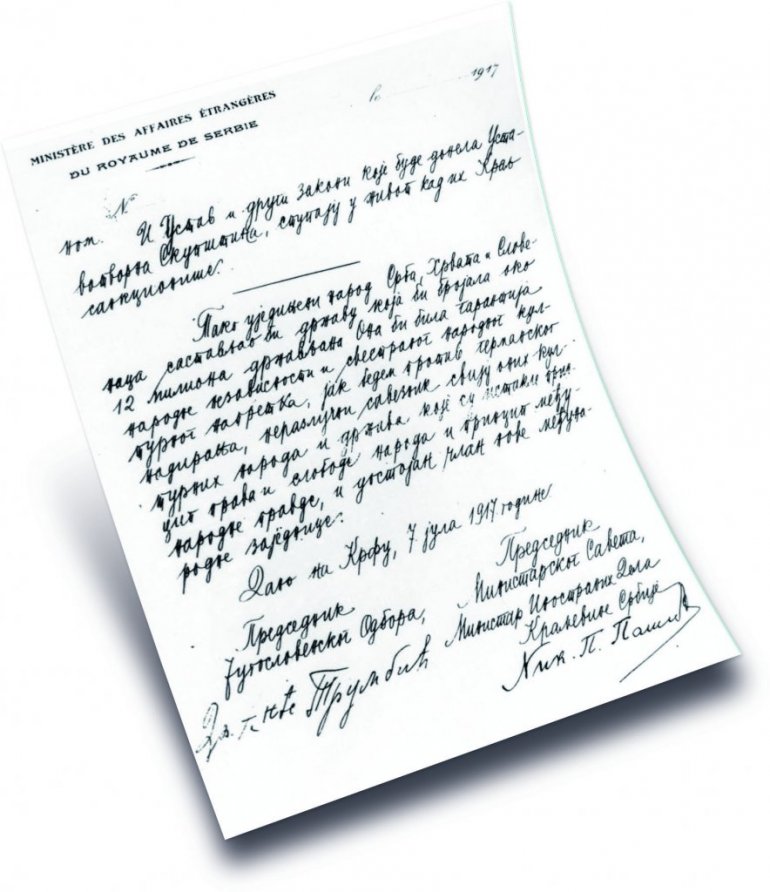 MINISTÈRE DES AFFAIRES ÉTRANGÈRES
DU ROYAUME DE SERBIE
le 1917
No
ном. И Устав и други закони које буде донела Уста-
вотворна Скупштина, ступају у живот кад их Краљ
санкционише.
Тако уједињени народ Срба, Хрвата и Слове-
наца састављао би државу која би бројала око
12 милиона држављана. Она би била гаранција
народне независности и свестраног народног кул-
турног напретка, јак бедем против германског
надирања, неразлучни савезник свију оних кул-
турних народа и држава које су истакле прин-
цип права и слободе народа и принцип међу-
народне правде, и достојан члан нове међуна-
родне заједнице.
Дано на Крфу, 7 јула 1917 године
Председник
Југословенског Одбора,
Др. Анте Трумбић
Председник
Министарског Савета,
Министар Иностраних Дела
Краљевине Србије
Ник. П. Пашић